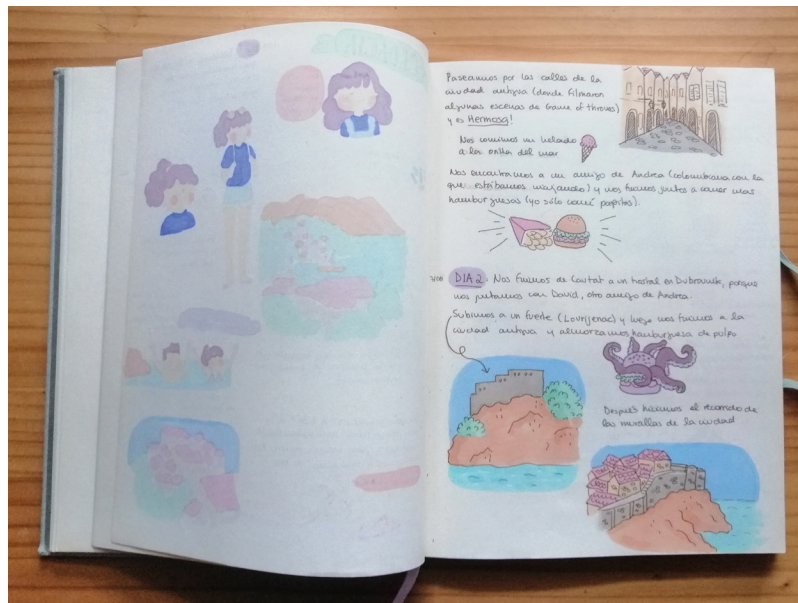 Paseamos por las calles de la
ciudad antigua (donde filmaron
algunas escenas de Game of thrones)
y es Hermosa!
Nos comimos un helado
a la orilla del mar
Nos encontramos a un amigo de Andrea (colombiana con la
que estábamos viajando) y nos fuimos juntos a comer unas
hamburguesas (yo sólo comí papitas).
DIA 2: Nos fuimos de Cavtat a un hostal en Dubrovnik, porque
nos juntamos con David, otro amigo de Andrea.
Subimos a un fuerte (Lovrijenac) y luego nos fuimos a la
ciudad antigua y almorzamos hamburguesa de pulpo
Después hicimos el recorrido de
las murallas de la ciudad